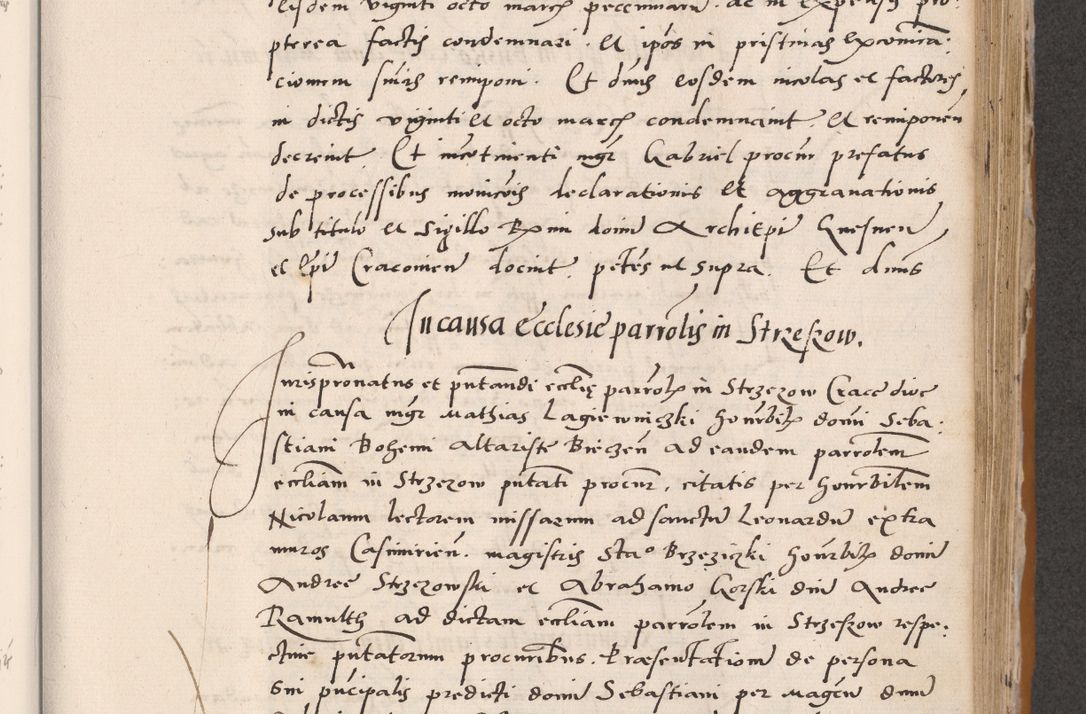 eisdem viginti octo march peccuniaru. ac in expensis pro:
pterea factis condemnari. Et ipos in pristinas excomica:
cionum suius reimponi. Et dnus eosdem nicolas et factores
in dictis viginti et octo march condemnauit. Et reimponen
decreuit. Et incotinenti mgr Gabriel procur prefatus
de processibus monicois declarationis et aggrauationis
sub titulo et Sigillo Rmi domi Archiepi Gnesnen
et Epi Cracouien docuit petes ut supra. Et dnus
In causa Ecclesie parrolis in Strzeszow.
Jurispronatus et putandi ecclie parrolis in Strzezow Cracc dioc
in causa mgr Mathias Lagiewniczki honrbilis domi Seba:
stiani Bohemi altariste Bieczen ad eandem parrolem
eccliam in Strzezow putati procur. citatis per honrbilem
Nicolaum lectorem missarum ad sanctu Leonardu extra
muros Casimirien. magistris Sta° Brzeziczki honrbilis domi
Andree Strzezowski et Abrahamo Gorski dni Andree
Ramulth ad dictam eccliam parrolem in Strzeszow respe:
ctiue putatorum procuribus. Praesentationem de persona
sui pncipalis predicti domi Sebastiani per magcu dnum